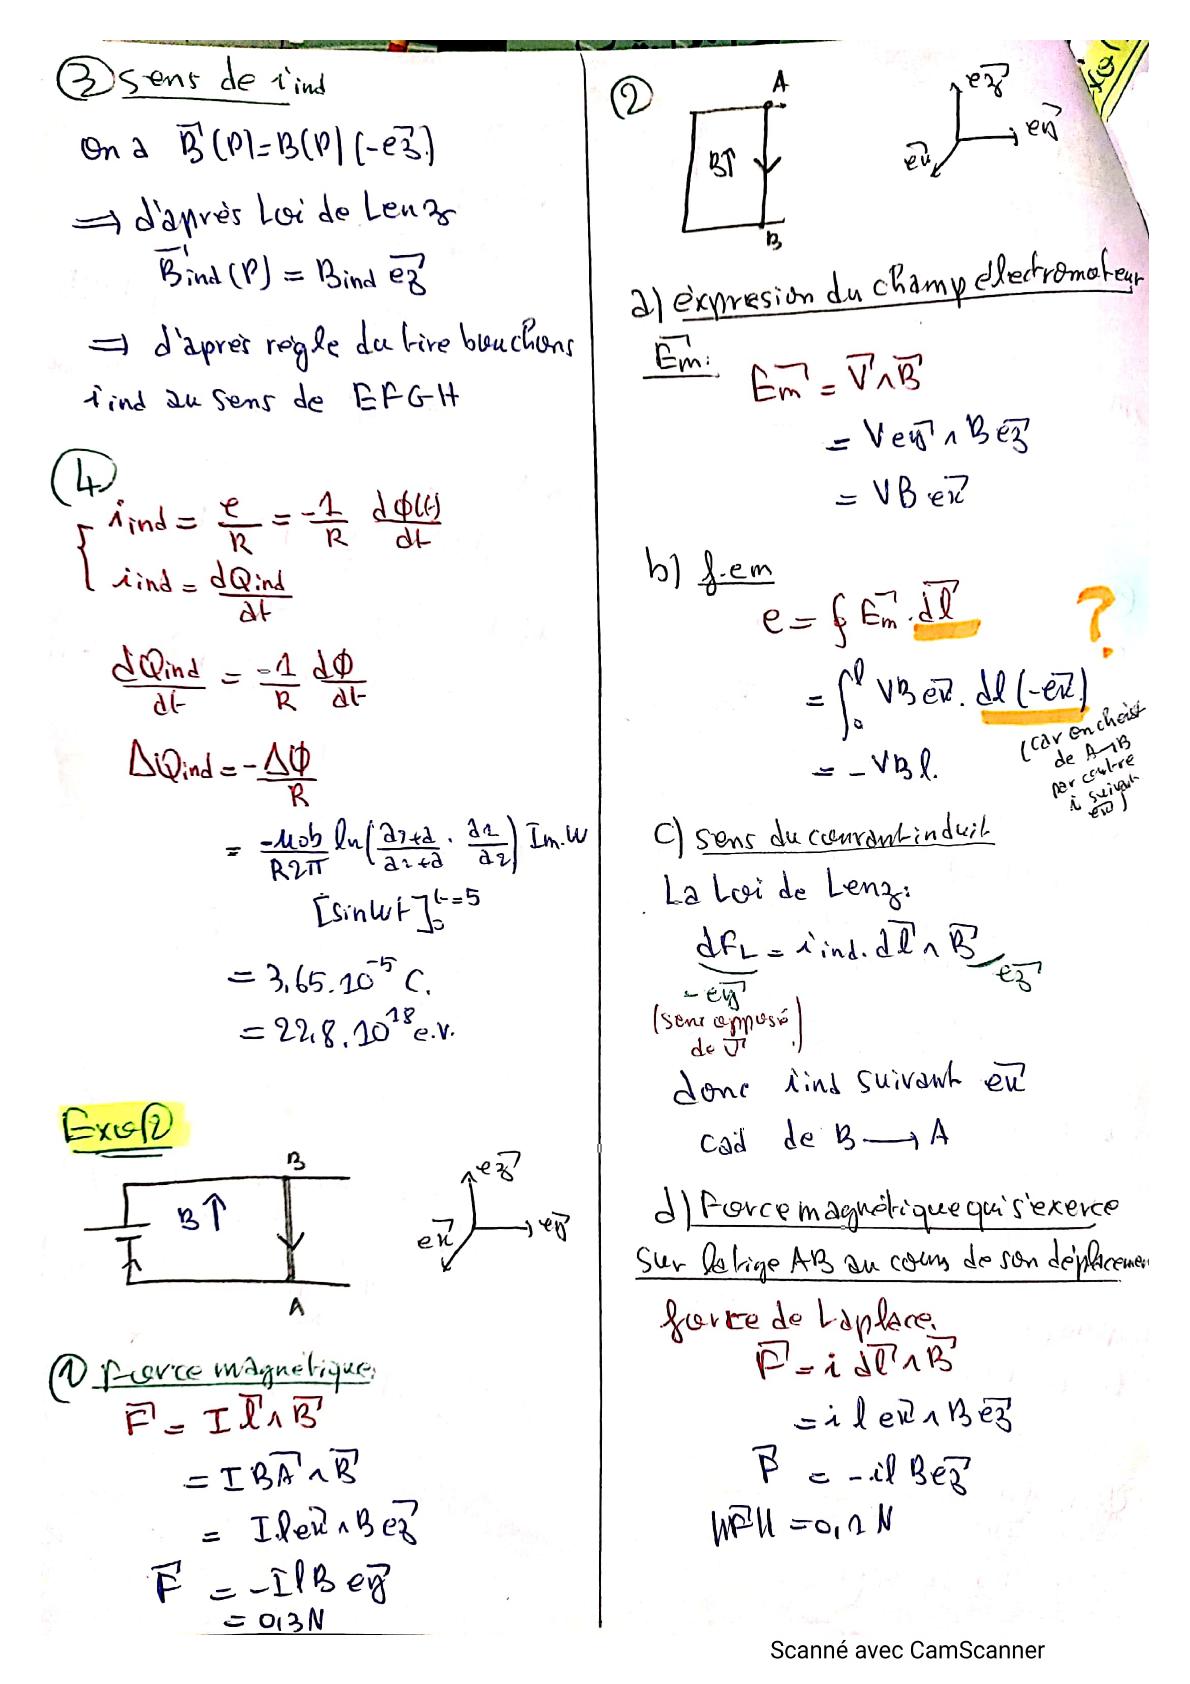 ③ sens de i ind
On a B⃗(P) = B(P) (-ez⃗)
⟹ d'après Loi de Lenz
B⃗ind (P) = Bind ez⃗
⟹ d'après regle du tire bouchons
i ind au sens de EFGH
④
i ind = e/R = -1/R dϕ(t)/dt
i ind = dQind/dt
dQind/dt = -1/R dΦ/dt
ΔQind = - ΔΦ/R
= -μob/R2π ln( a1+a/a2+a . a1/a2 ) Im.W
[sinWt]₀^t=5
= 3,65.10^-5 C.
= 22,8.10^18 e.v.
Exo②
B
B↑
ez⃗
ex⃗
ey⃗
A
① force magnétique:
F⃗ = I l⃗ ∧ B⃗
= I BA⃗ ∧ B⃗
= I.l ex⃗ ∧ B ez⃗
F⃗ = -IlB ey⃗
= 0,3N
②
A
B↑
B
ez⃗
ex⃗
a) expresion du champ électromoteur
Em⃗:
Em⃗ = V⃗ ∧ B⃗
= V ey⃗ ∧ B ez⃗
= VB ex⃗
b) f.em
e = ∮ Em⃗ . dl⃗
?
= ∫₀^l VB ex⃗ . dl (-ex⃗)
(car on choisit
de A→B
par contre
i suivant
ex⃗)
= - VBl.
c) sens du courant induit
La Loi de Lenz:
dFL = i ind. dl⃗ ∧ B⃗
ez⃗
- ey⃗
(sens opposé
de V⃗)
donc i ind suivant ex⃗
cad de B → A
d) Force magnétique qui s'exerce
sur la tige AB au cours de son déplacemen
force de Laplace.
F⃗ = i dl⃗ ∧ B⃗
= i l ex⃗ ∧ B ez⃗
F⃗ = -il B ez⃗
||F⃗|| = 0,1 N
Scanné avec CamScanner